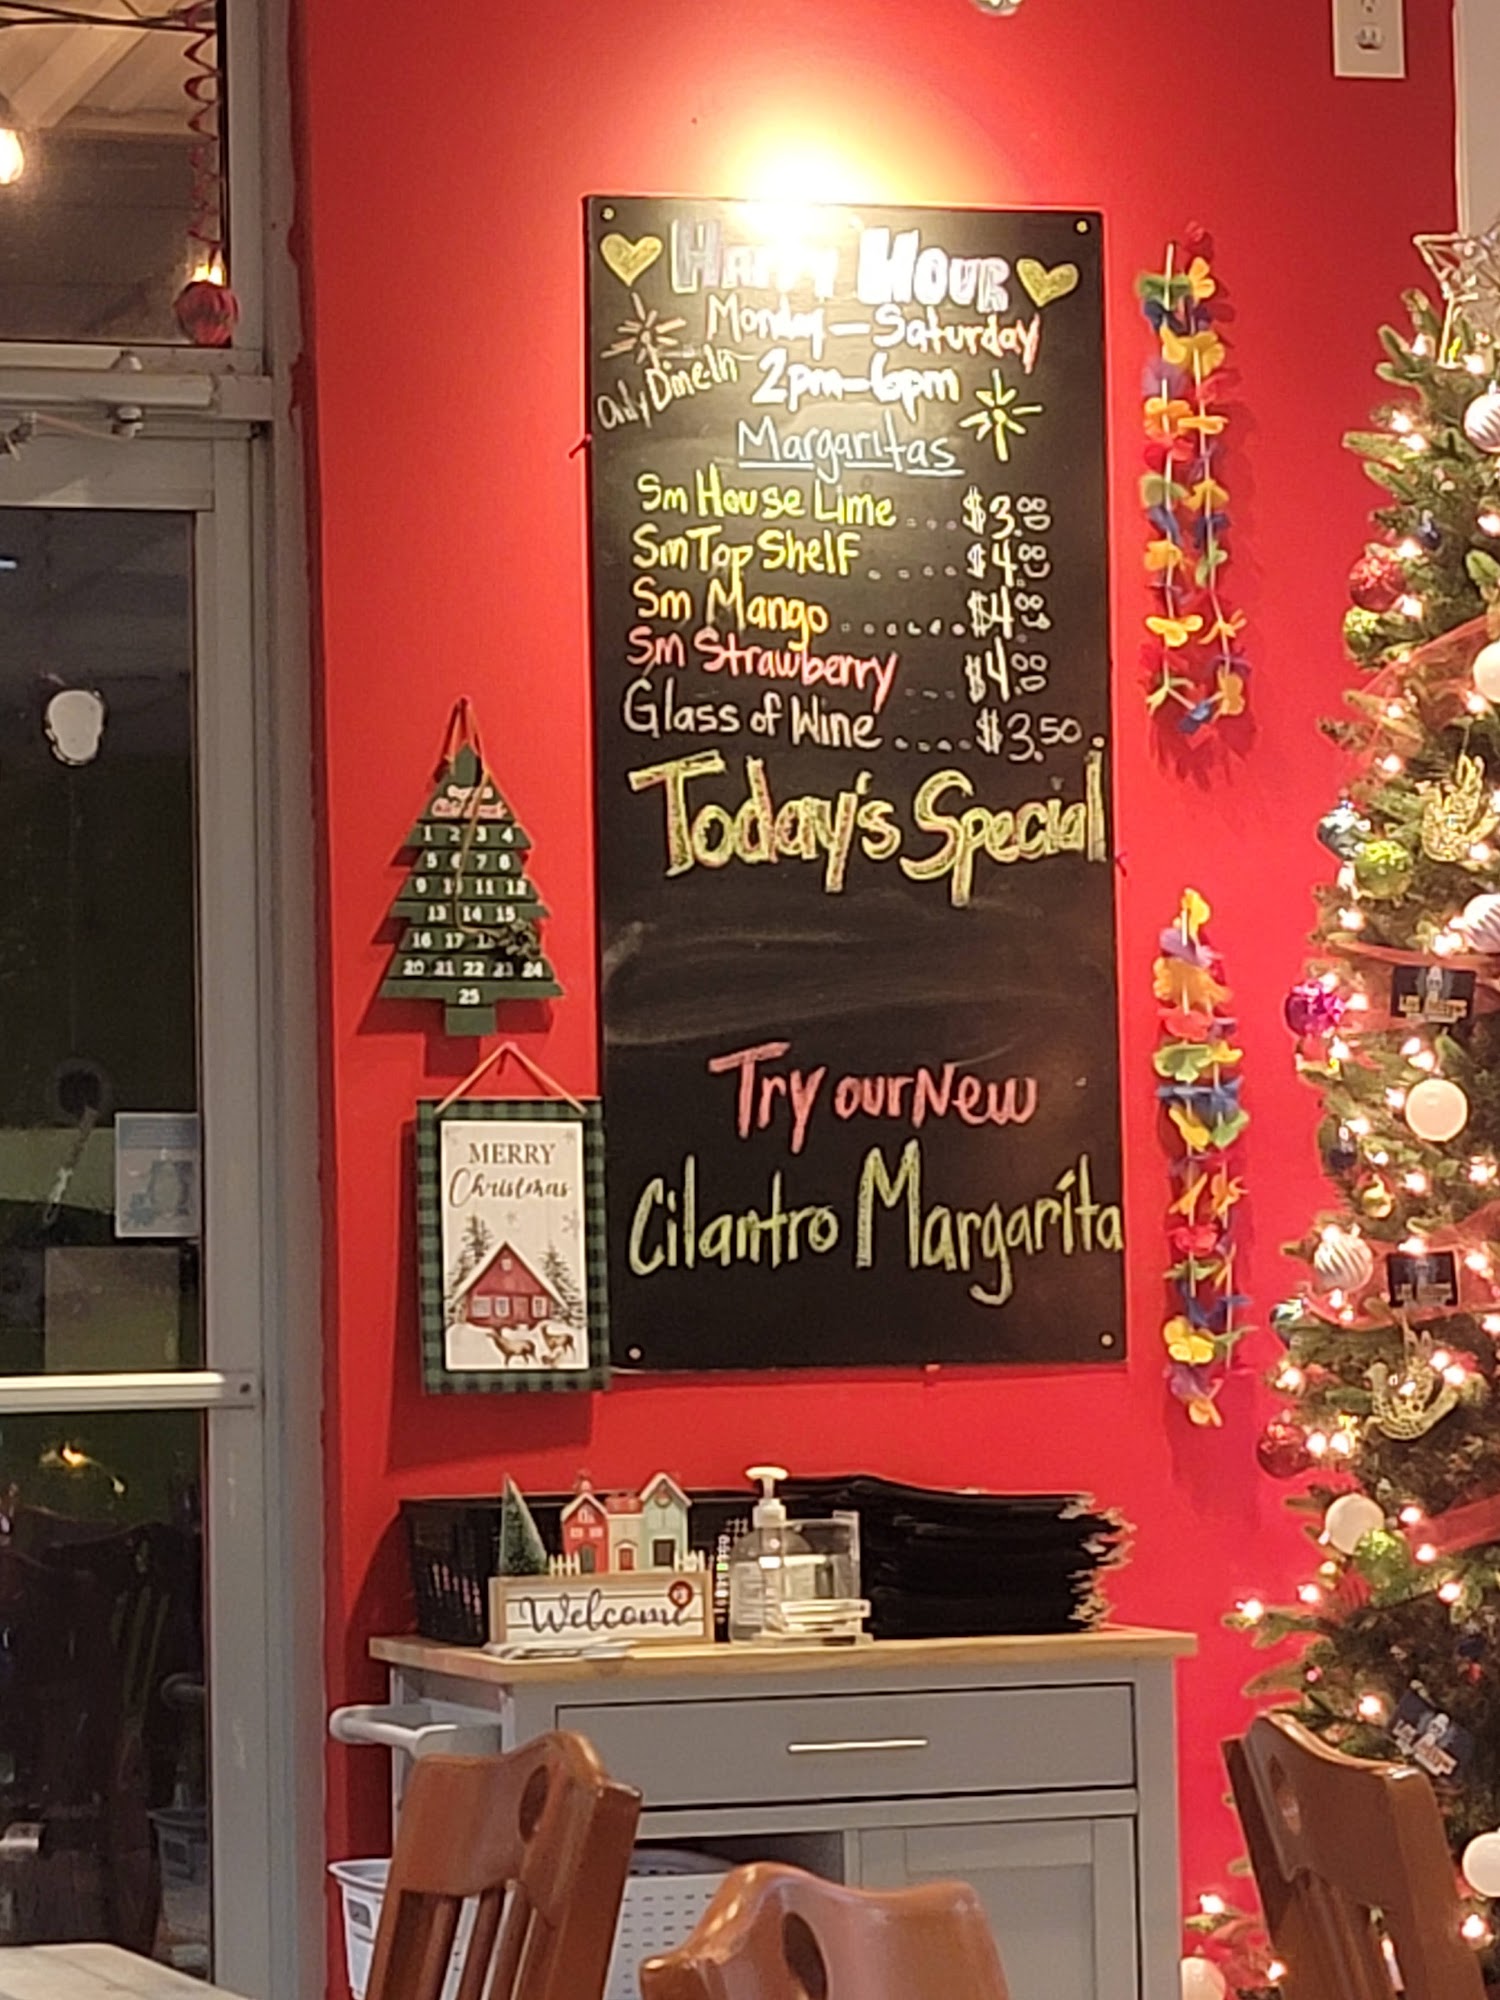 Happy Hour
Monday - Saturday
Only Dine-In 2pm-6pm
Margaritas
Sm House Lime ... $3.00
Sm Top Shelf ..... $4.00
Sm Mango ....... $4.00
Sm Strawberry ... $4.00
Glass of Wine .... $3.50
Today's Special
Try our New
Cilantro Margarita
1 2 3 4
5 6 7 8
9 10 11 12
13 14 15
16 17
20 21 22 23 24
25
MERRY
Christmas
Welcome